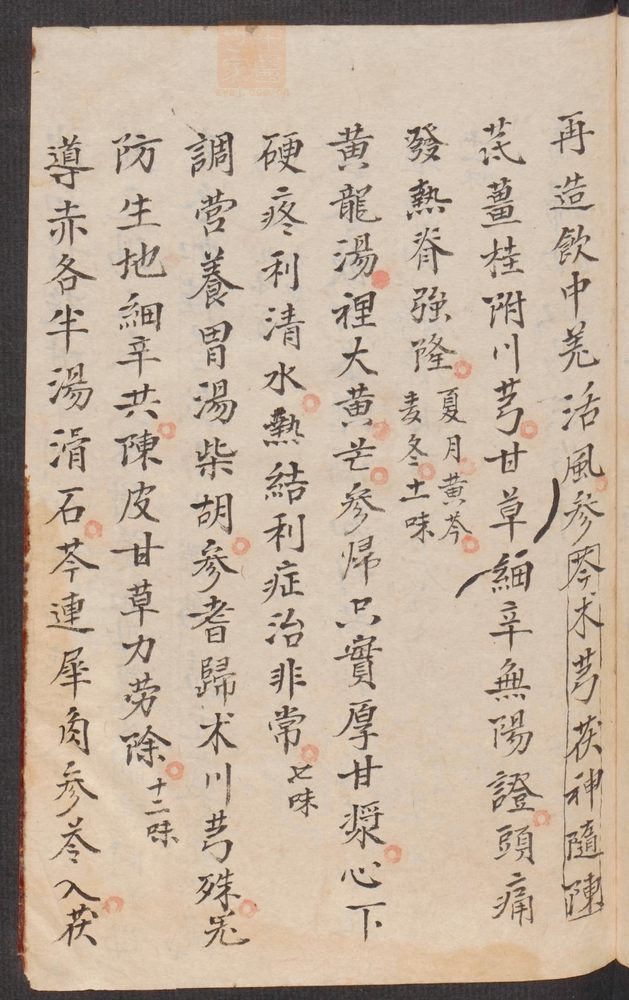 再造飲中羌活風參芩术芎茯神隨陳
芪薑桂附川芎甘草細辛無陽證頭痛
發熱脊強隆夏月黃芩
麦冬土味
黃龍湯裡大黃芒參帰只實厚甘漿心下
硬疼利清水熱結利症治非常七味
調营養胃湯柴胡參耆歸术川芎殊羌
防生地細辛共陳皮甘草力劳除十二味
導赤各半湯滑石芩連犀肉參苓入茯